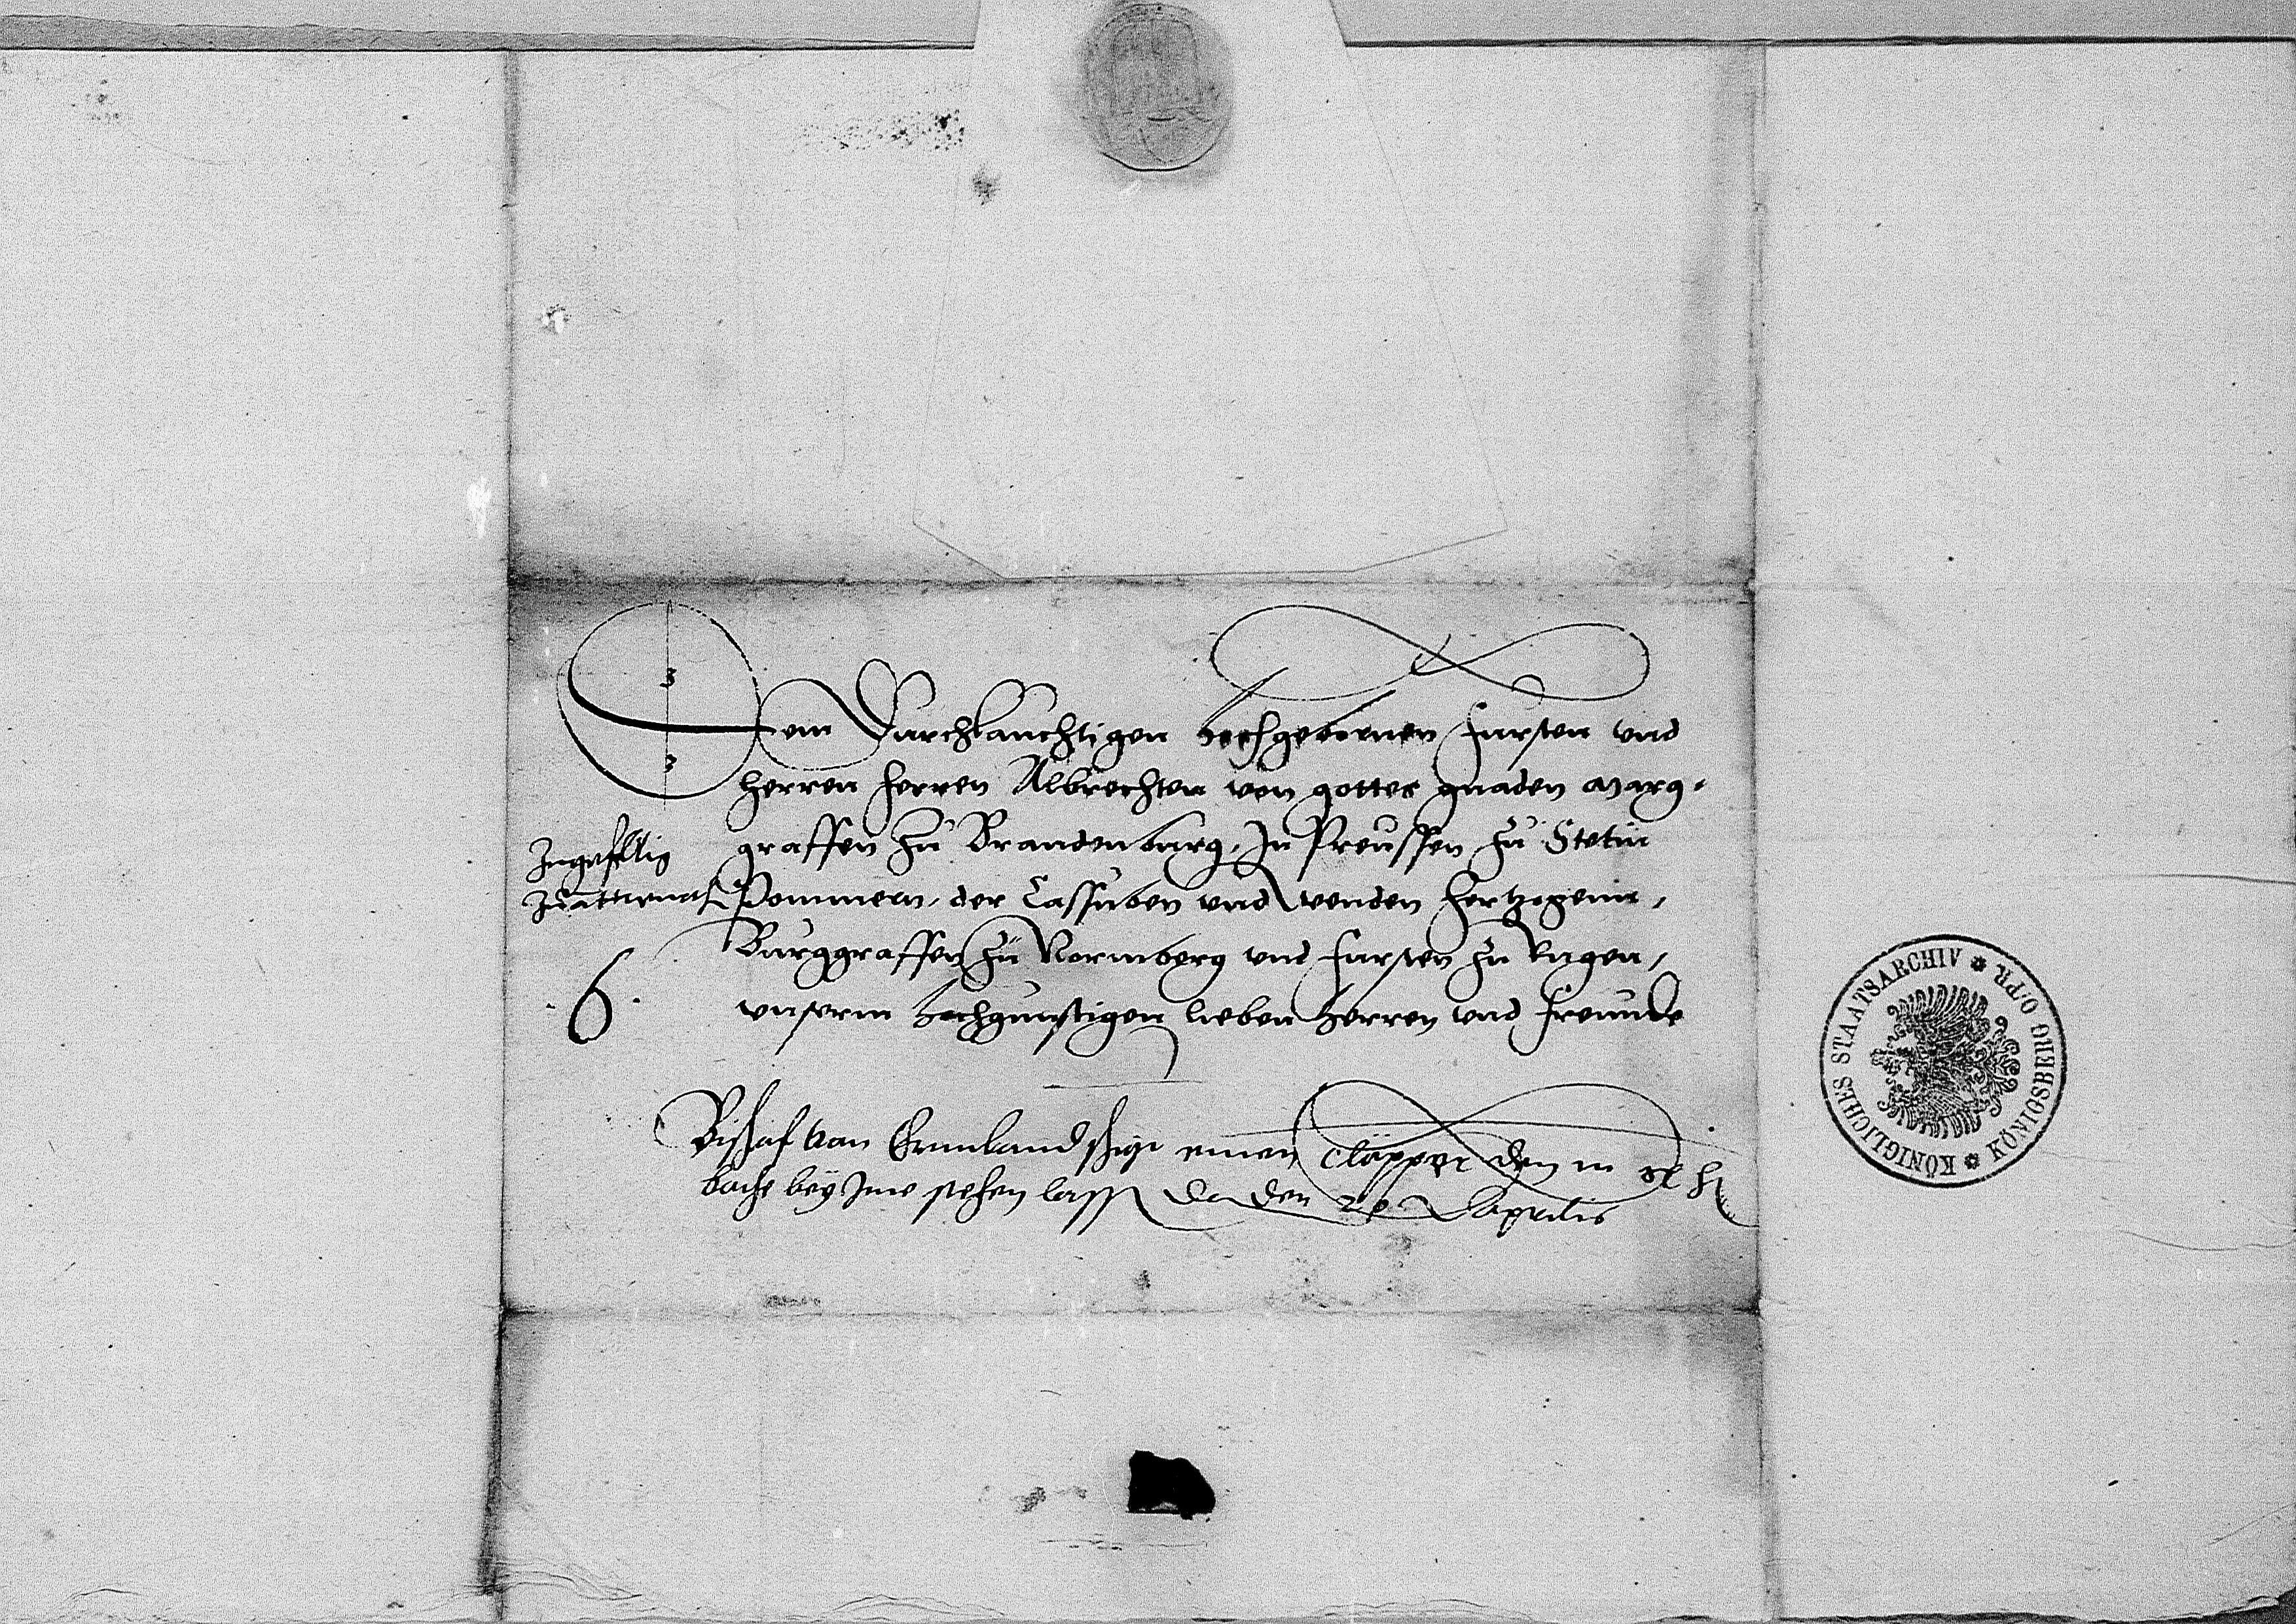 Dem Durchlauchtigen Hochgebornen Fursten und
Herren Herren Albrechten von gottes gnaden Marg-
graffen zu Brandenburg, In Preussen zu Stetin
Pommern, der Cassuben und Wenden Hertzogenn,
Burggraffen zu Normberg und Fursten zu Rugen,
unserm hochgunstigen lieben Herren und Freunde
6.
Bischof von Ermland schigt einen Clopper den
bey Ime stehen lassen den 26 Aprilis
KÖNIGLICHES STAATSARCHIV * KÖNIGSBERG O./PR. *